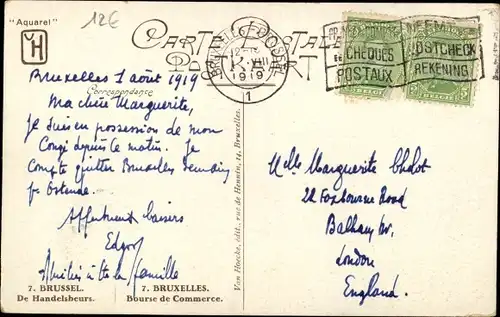 "Aquarel"
12€
CARTE POSTALE
POSTKAART
VH
BRUXELLES
12-
VIII
1919
1
CHEQUES
POSTAUX
POSTCHECK
REKENING
5
5
Correspondance
Bruxelles 1 août 1919
Ma chère Marguerite,
Je suis en possession de mon
Congé depuis ce matin. Je
Compte quitter Bruxelles demain
pr Ostende.
Affectueux baisers
Edgar
Amitiés à tte la famille
7. BRUSSEL.
De Handelsbeurs.
7. BRUXELLES.
Bourse de Commerce.
Van Hoecke, édit., rue de Hennin, 14, Bruxelles.
Melle Marguerite
22 Foxbourne Road
Balham
London
England.